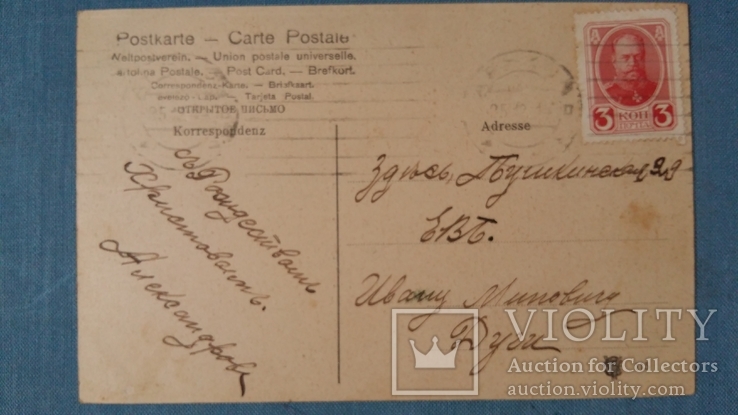 Postkarte — Carte Postale
Weltpostverein. — Union postale universelle.
Cartolina Postale. — Post Card. — Brefkort.
Correspondenz-Karte. — Briefkaart.
— Tarjeta Postal.
ОТКРЫТОЕ ПИСЬМО
Korrespondenz
Adresse
3 КОП 3
съ Рождествомъ
Христовымъ.
Александровъ
Здѣсь, Пушкинская
ЕВБ.
Ивану
VIOLITY
Auction for Collectors
auction.violity.com